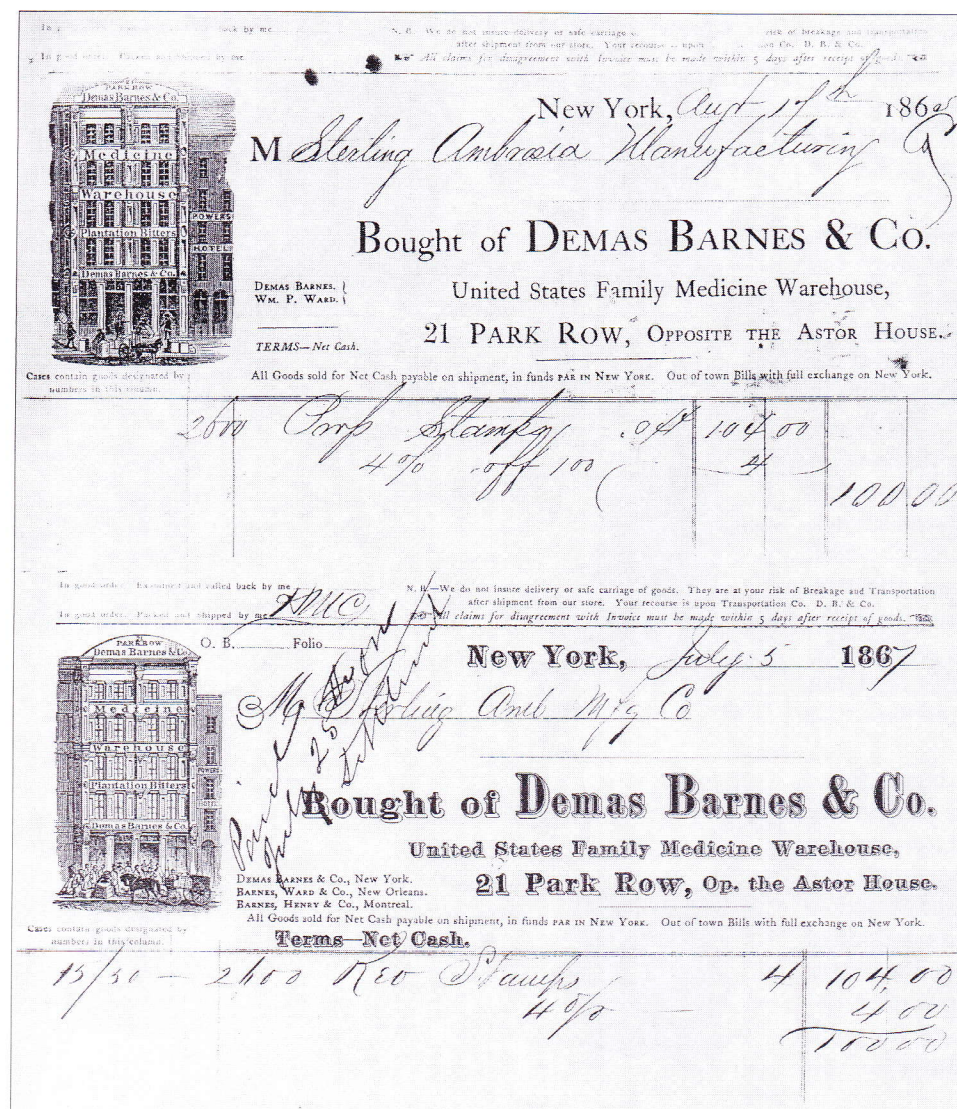 back by me
N. B. We do not insure delivery or safe carriage
risk of breakage and transportation
after shipment from our store. Your recourse is upon Co. D. B. & Co.
In good order. Packed and shipped by me
All claims for disagreement with Invoice must be made within 5 days after receipt of goods.
21
PARK ROW
Demas Barnes & Co.
Medicine
Warehouse
Plantation Bitters
Demas Barnes & Co.
POWERS
HOTEL
New York, 17th 186
M Sterling Ambrosia Manufacturing Co
Bought of DEMAS BARNES & CO.
DEMAS BARNES.
WM. P. WARD.
United States Family Medicine Warehouse,
21 PARK ROW, OPPOSITE THE ASTOR HOUSE.
TERMS—Net Cash.
Cases contain goods designated by
numbers in this column.
All Goods sold for Net Cash payable on shipment, in funds PAR IN NEW YORK. Out of town Bills with full exchange on New York.
2600 Prop Stamps .04 104 00
4% off 100 4
100.00
In good order. Examined and called back by me
N. B.—We do not insure delivery or safe carriage of goods. They are at your risk of Breakage and Transportation
after shipment from our store. Your recourse is upon Transportation Co. D. B. & Co.
In good order. Packed and shipped by me
All claims for disagreement with Invoice must be made within 5 days after receipt of goods.
21
PARK ROW
Demas Barnes & Co.
Medicine
Warehouse
Plantation Bitters
Demas Barnes & Co.
POWERS
HOTEL
O. B. Folio
New York, July 5 1867
M Sterling Amb Mfg Co
Paid
July 25
Bought of Demas Barnes & Co.
United States Family Medicine Warehouse,
DEMAS BARNES & CO., New York.
BARNES, WARD & CO., New Orleans.
BARNES, HENRY & CO., Montreal.
21 Park Row, Op. the Astor House.
All Goods sold for Net Cash payable on shipment, in funds PAR IN NEW YORK. Out of town Bills with full exchange on New York.
Cases contain goods designated by
numbers in this column.
Terms—Net Cash.
15/30 — 2600 Rev Stamps 4 104.00
4% — 4 00
100 00